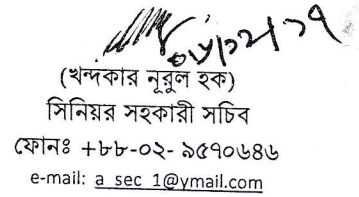 ০৮/১২/১৭
(খন্দকার নূরুল হক)
সিনিয়র সহকারী সচিব
ফোনঃ +৮৮-০২- ৯৫৭০৬৪৬
e-mail: a_sec_1@ymail.com